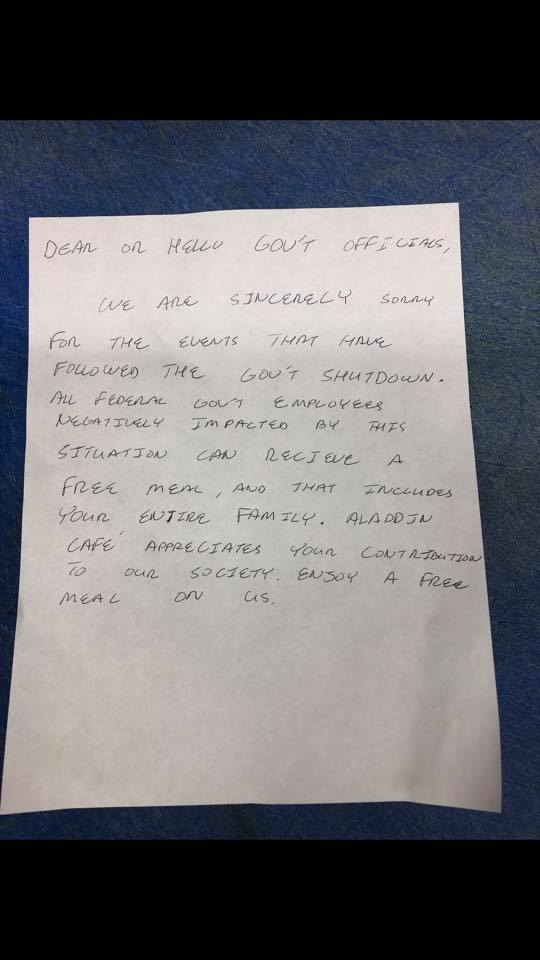 DEAR OR HELLO GOV'T OFFICIALS,
WE ARE SINCERELY SORRY
FOR THE EVENTS THAT HAVE
FOLLOWED THE GOV'T SHUTDOWN.
ALL FEDERAL GOV'T EMPLOYEES
NEGATIVELY IMPACTED BY THIS
SITUATION CAN RECIEVE A
FREE MEAL, AND THAT INCLUDES
YOUR ENTIRE FAMILY. ALADDIN
CAFÉ APPRECIATES YOUR CONTRIBUTION
TO OUR SOCIETY. ENJOY A FREE
MEAL ON US.